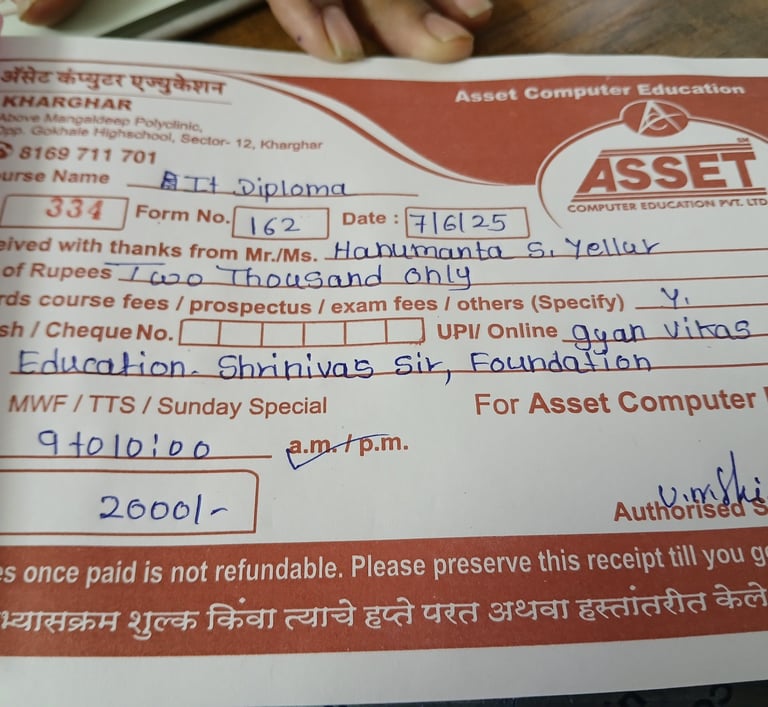 अ‍ॅसेट कंप्युटर एज्युकेशन
Asset Computer Education
KHARGHAR
Above Mangaldeep Polyclinic,
Opp. Gokhale Highschool, Sector- 12, Kharghar
8169 711 701
ASSET
SM
COMPUTER EDUCATION PVT. LTD
urse Name It Diploma
334 Form No. 162 Date : 7/6/25
eived with thanks from Mr./Ms. Hanumanta S. Yellur
of Rupees Two Thousand only
rds course fees / prospectus / exam fees / others (Specify) Y.
sh / Cheque No. UPI/ Online gyan vikas
Education. Shrinivas Sir, Foundation
MWF / TTS / Sunday Special For Asset Computer
9 to 10:00 a.m. / p.m.
2000/-
Authorised S
es once paid is not refundable. Please preserve this receipt till you g
भ्यासक्रम शुल्क किंवा त्याचे हप्ते परत अथवा हस्तांतरीत केले